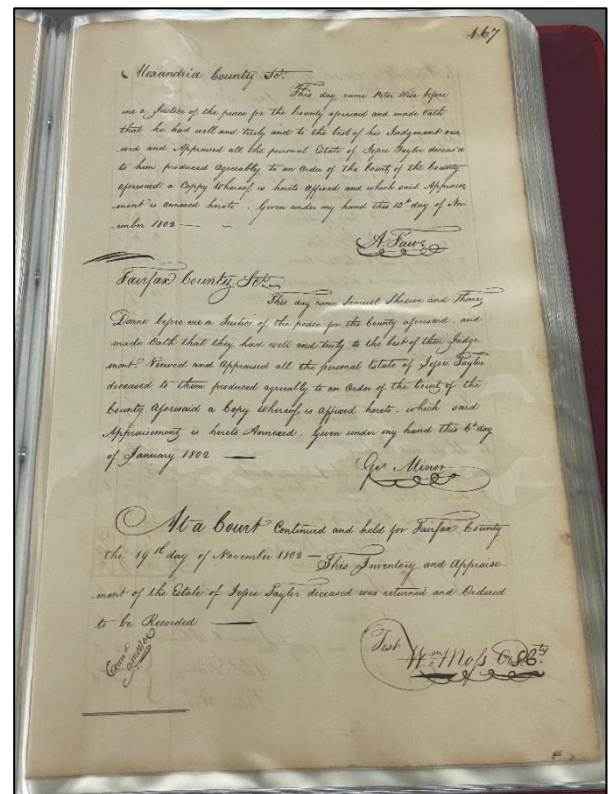 167
Alexandria County Sct.
This day came Peter Wise before
me a Justice of the peace for the County aforesaid and made Oath
that he had well and truly and to the best of his Judgment
and Appraised all the personal Estate of Jesse Taylor deceas'd
to him produced agreeably to an Order of the Court of the County
aforesaid a Coppy whereof is hereto affixed and which said Appraise
ment is annexed hereto. Given under my hand this 13th day of Nov
ember 1802
A. Faw
Fairfax County Sct.
This day came Samuel Shreve and Thomas
Darne before me a Justice of the peace for the County aforesaid, and
made Oath that they had well and truly to the best of their Judge
ment Viewed and appraised all the personal Estate of Jesse Taylor
deceased to them produced agreeably to an Order of the Court of the
County Aforesaid a Copy whereof is affixed hereto, which said
Appraisement is hereto Annexed. Given under my hand this 6th day
of January 1802
Geo Minor
At a Court Continued and held for Fairfax County
the 19th day of November 1802 - This Inventory and Appraise
ment of the Estate of Jesse Taylor deceased was returned and Ordered
to be Recorded
Test
Wm Moss
Exam'd